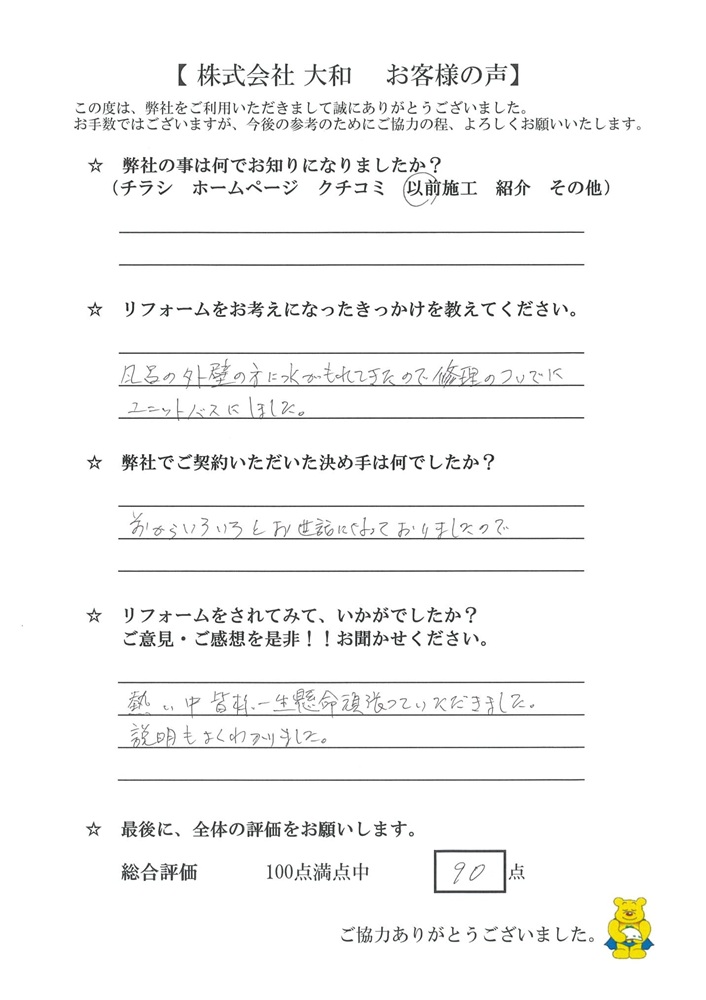 【 株式会社 大和　お客様の声】
この度は、弊社をご利用いただきまして誠にありがとうございました。
お手数ではございますが、今後の参考のためにご協力の程、よろしくお願いいたします。
☆　弊社の事は何でお知りになりましたか？
（チラシ　ホームページ　クチコミ　以前施工　紹介　その他）
☆　リフォームをお考えになったきっかけを教えてください。
風呂の外壁の方に水がもれてきたので修理のついでに
ユニットバスにしました。
☆　弊社でご契約いただいた決め手は何でしたか？
前からいろいろとお世話になっておりましたので
☆　リフォームをされてみて、いかがでしたか？
ご意見・ご感想を是非！！お聞かせください。
熱い中皆様一生懸命頑張っていただきました。
説明もよくわかりました。
☆　最後に、全体の評価をお願いします。
総合評価　100点満点中　90　点
ご協力ありがとうございました。